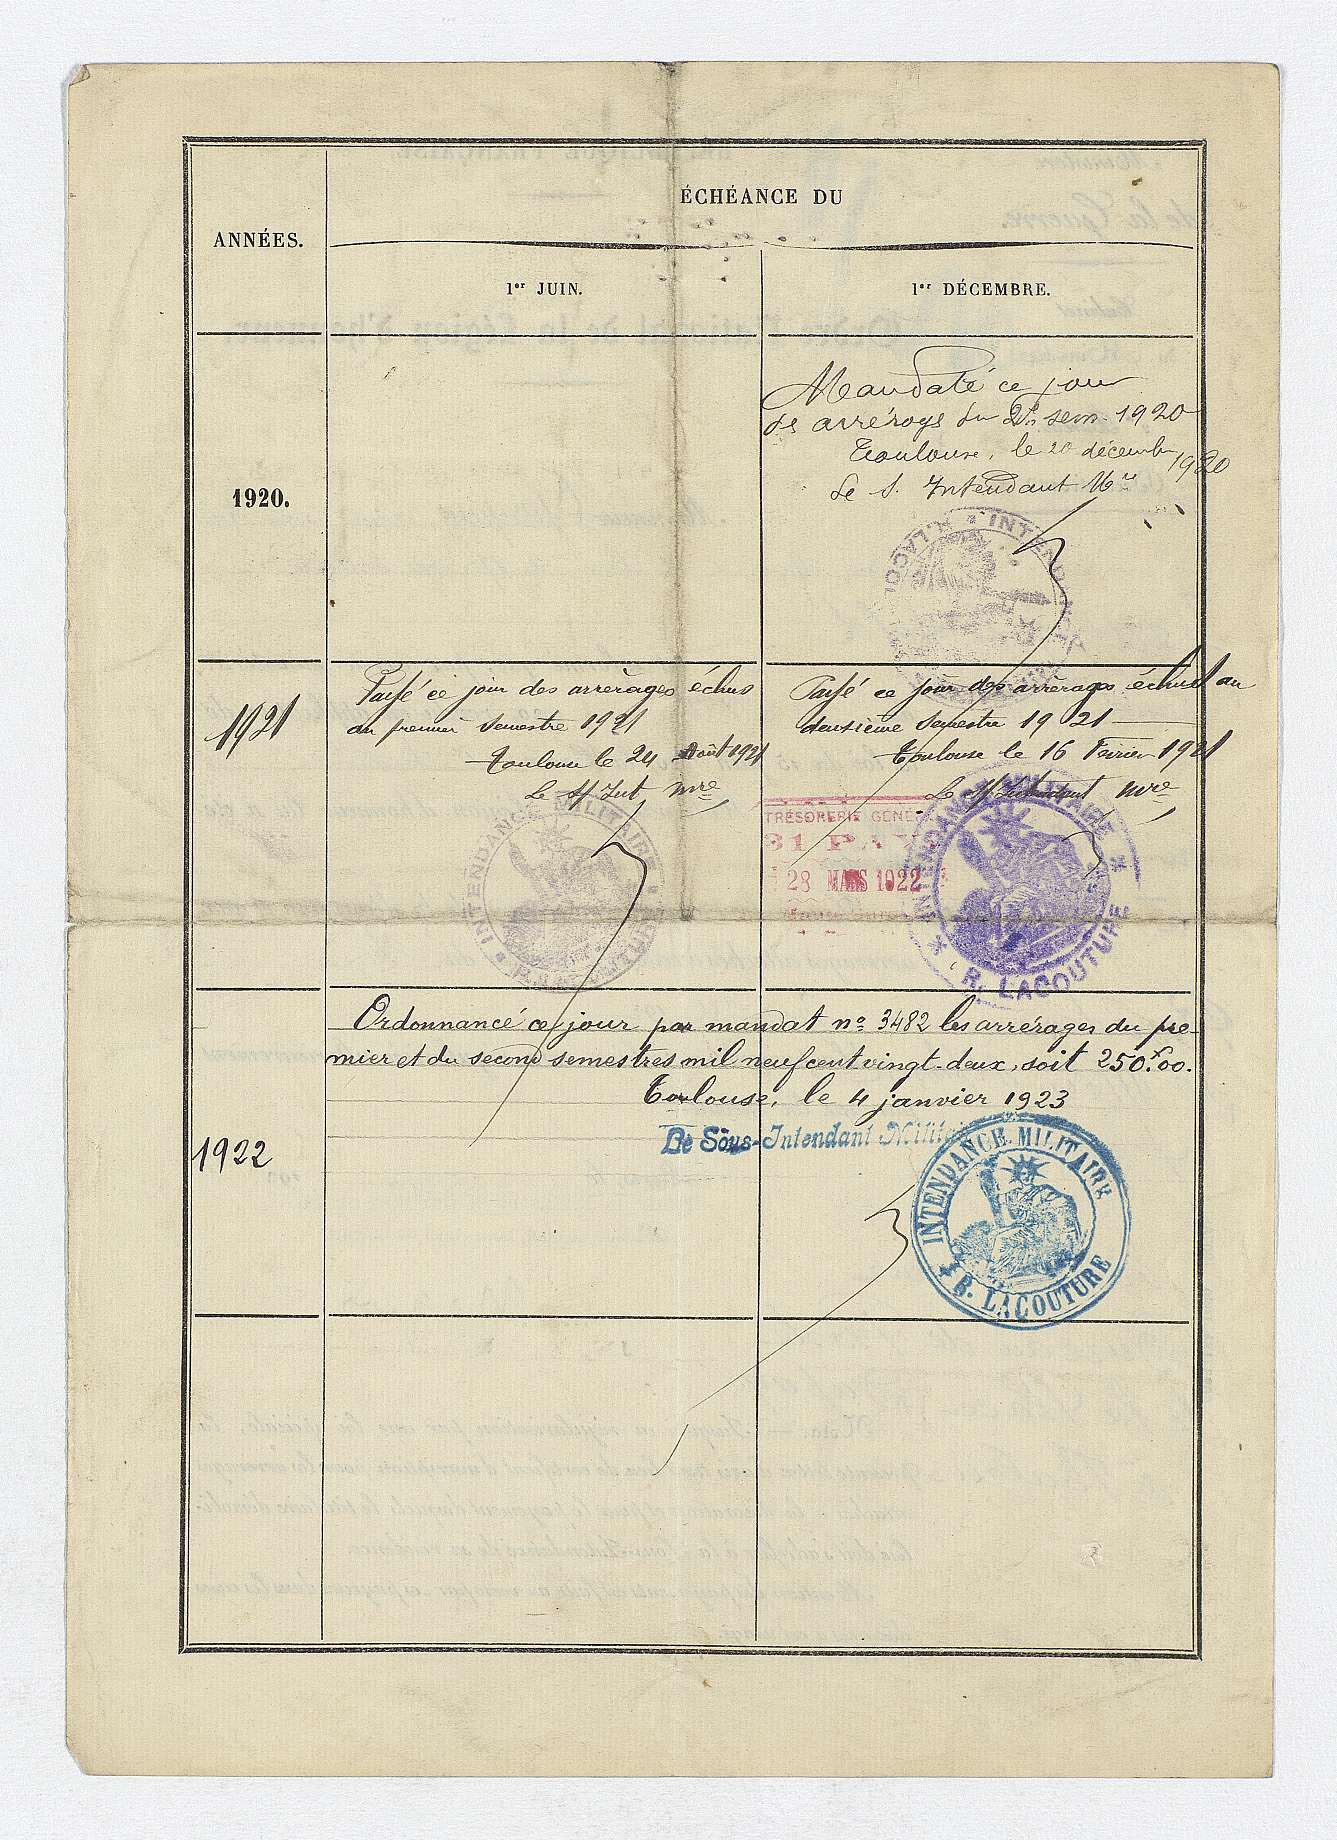 ANNÉES.
ÉCHÉANCE DU
1er JUIN.
1er DÉCEMBRE.
1920.
Mandaté ce jour
des arrérages du 2e sem. 1920
Toulouse, le 20 décembre 1920
Le S. Intendant Mre
INTENDANCE
R. LACO
1921
Passé ce jour des arrérages échus
au premier semestre 1921
Toulouse le 24 Août 1921
Le S/Int Mre
INTENDANCE MILITAIRE
Passé ce jour des arrérages échus au
deuxième semestre 1921
Toulouse le 16 Février 1921
Le S/Intendant Mre
TRÉSORERIE GÉNÉR
31 PAY
28 MARS 1922
INTENDANCE MILITAIRE
R. LACOUTURE
1922
Ordonnancé ce jour par mandat no 3482 les arrérages du pre-
mier et du second semestres mil neuf cent vingt-deux, soit 250f.00.
Toulouse, le 4 janvier 1923
Le Sous-Intendant Milit
INTENDANCE MILITAIRE
R. LACOUTURE